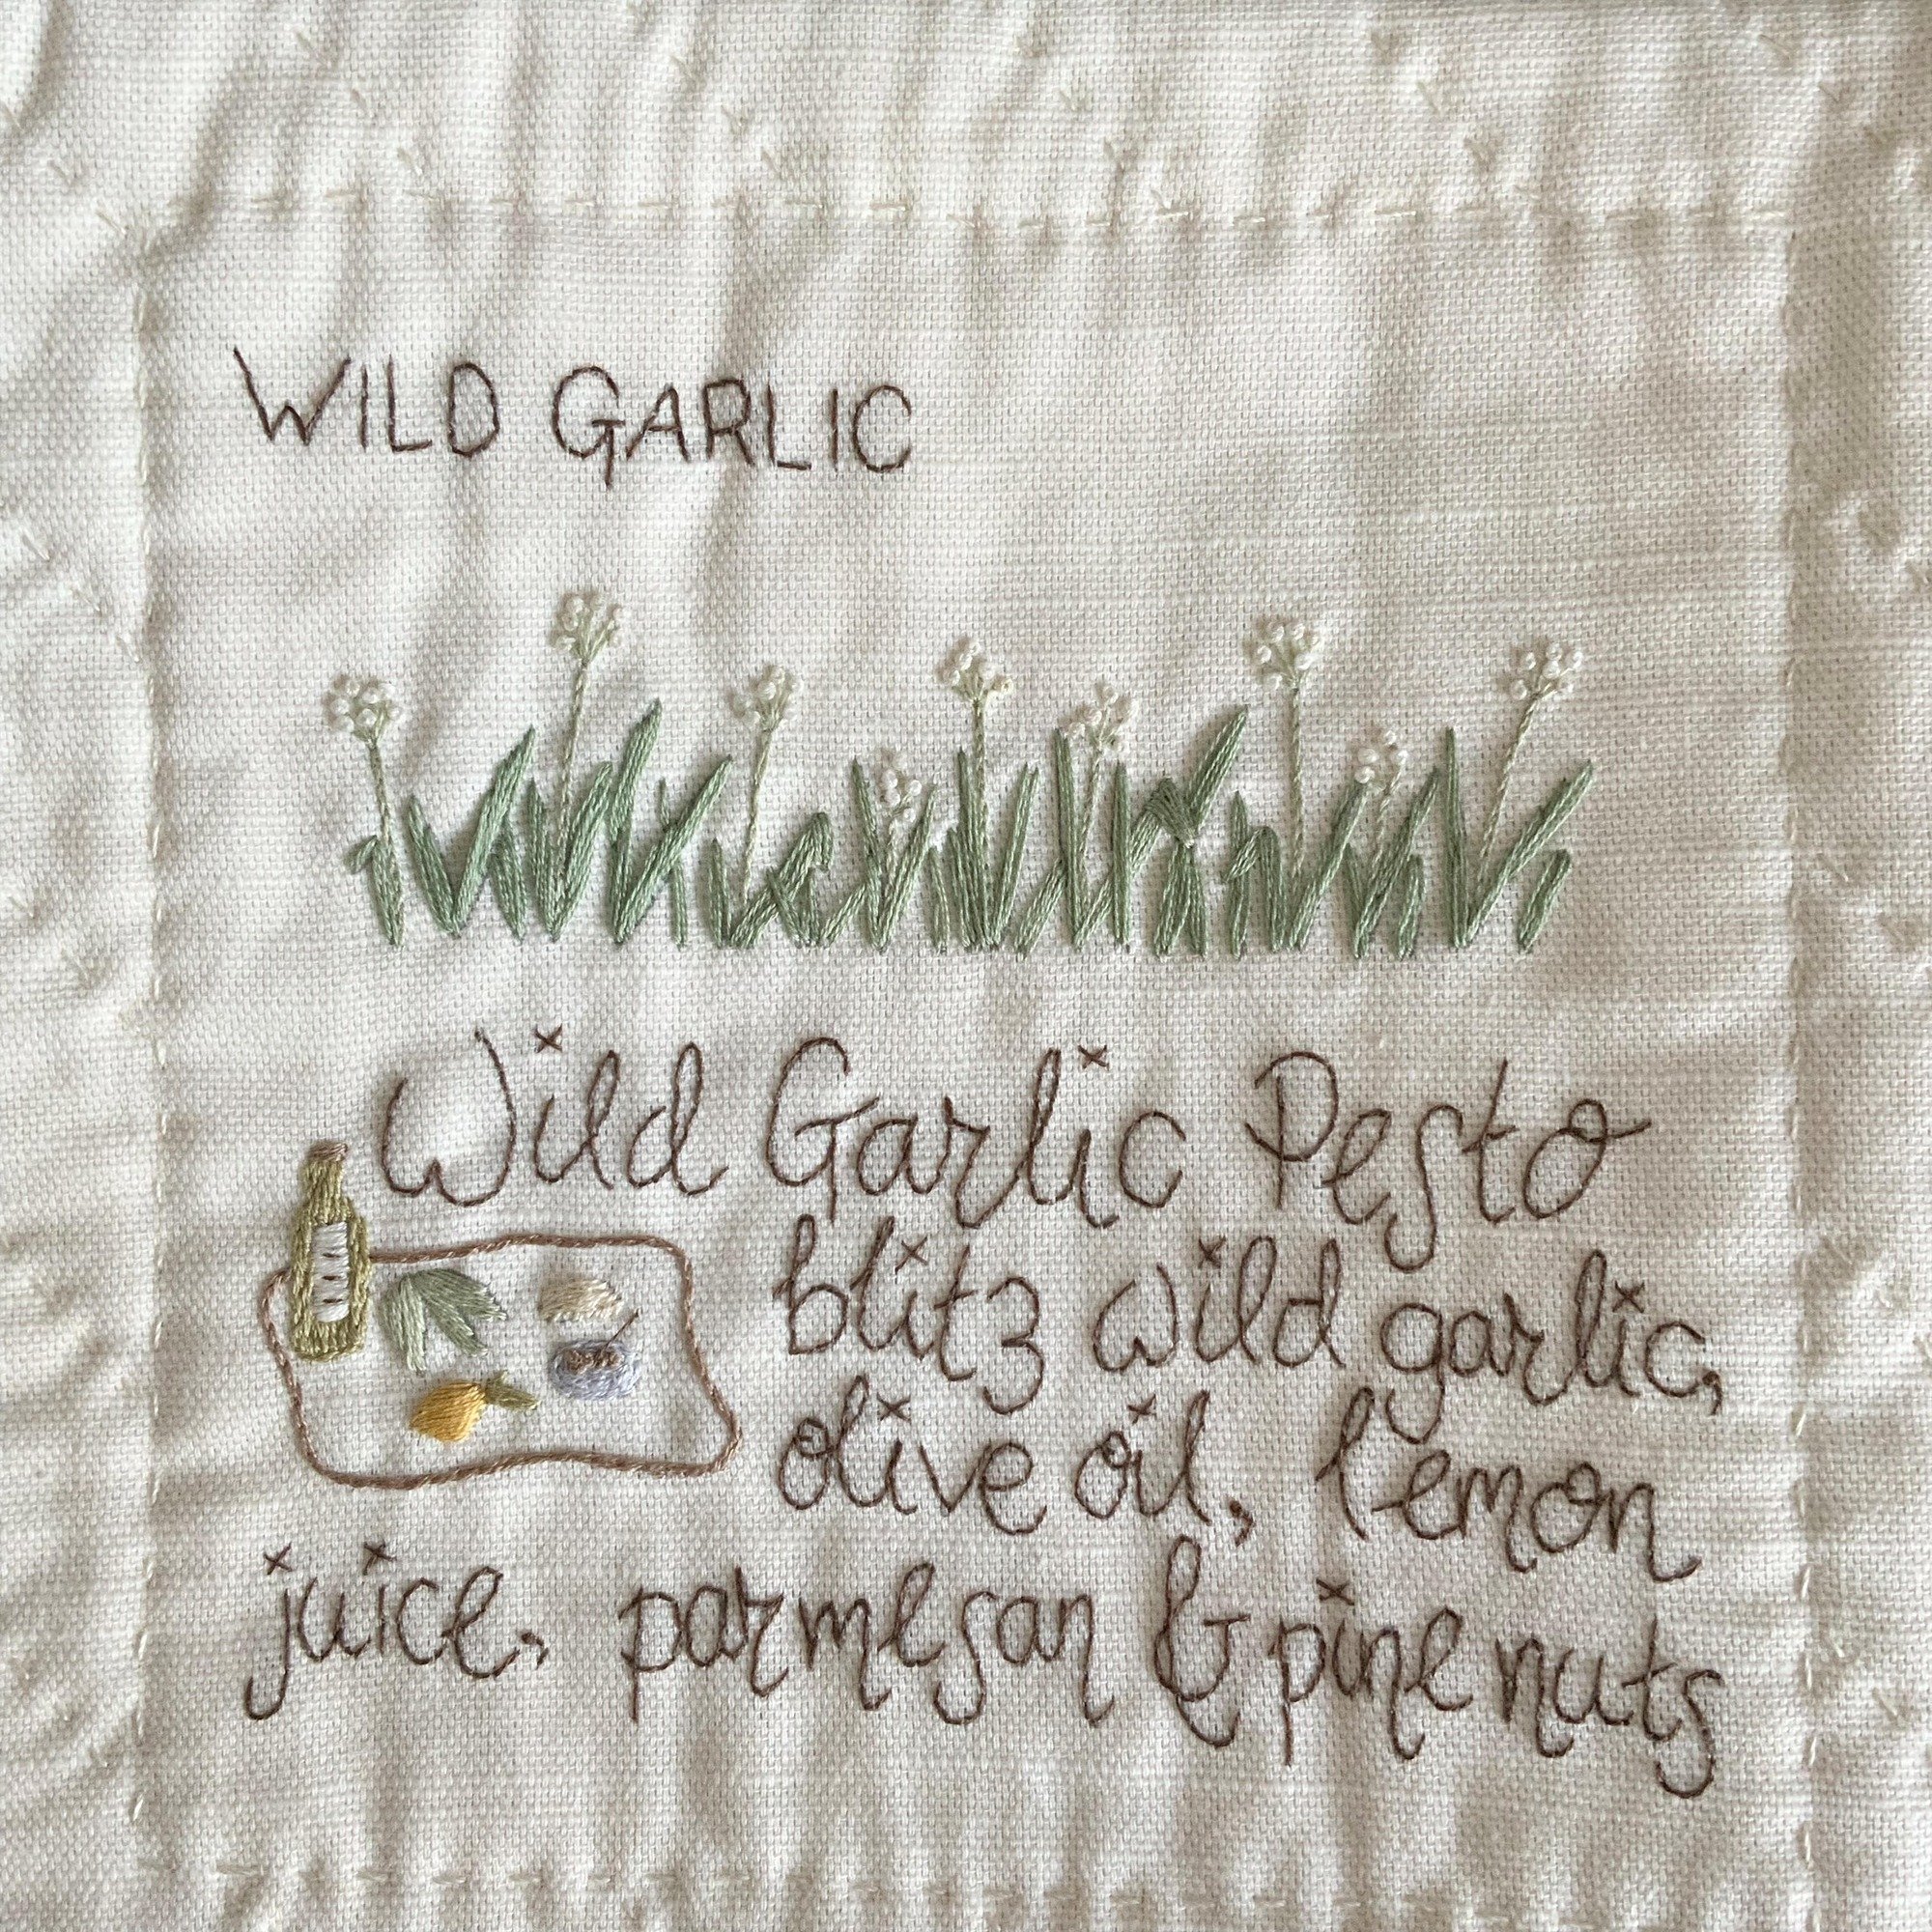 WILD GARLIC
Wild Garlic Pesto
blitz wild garlic,
olive oil, lemon
juice, parmesan & pine nuts